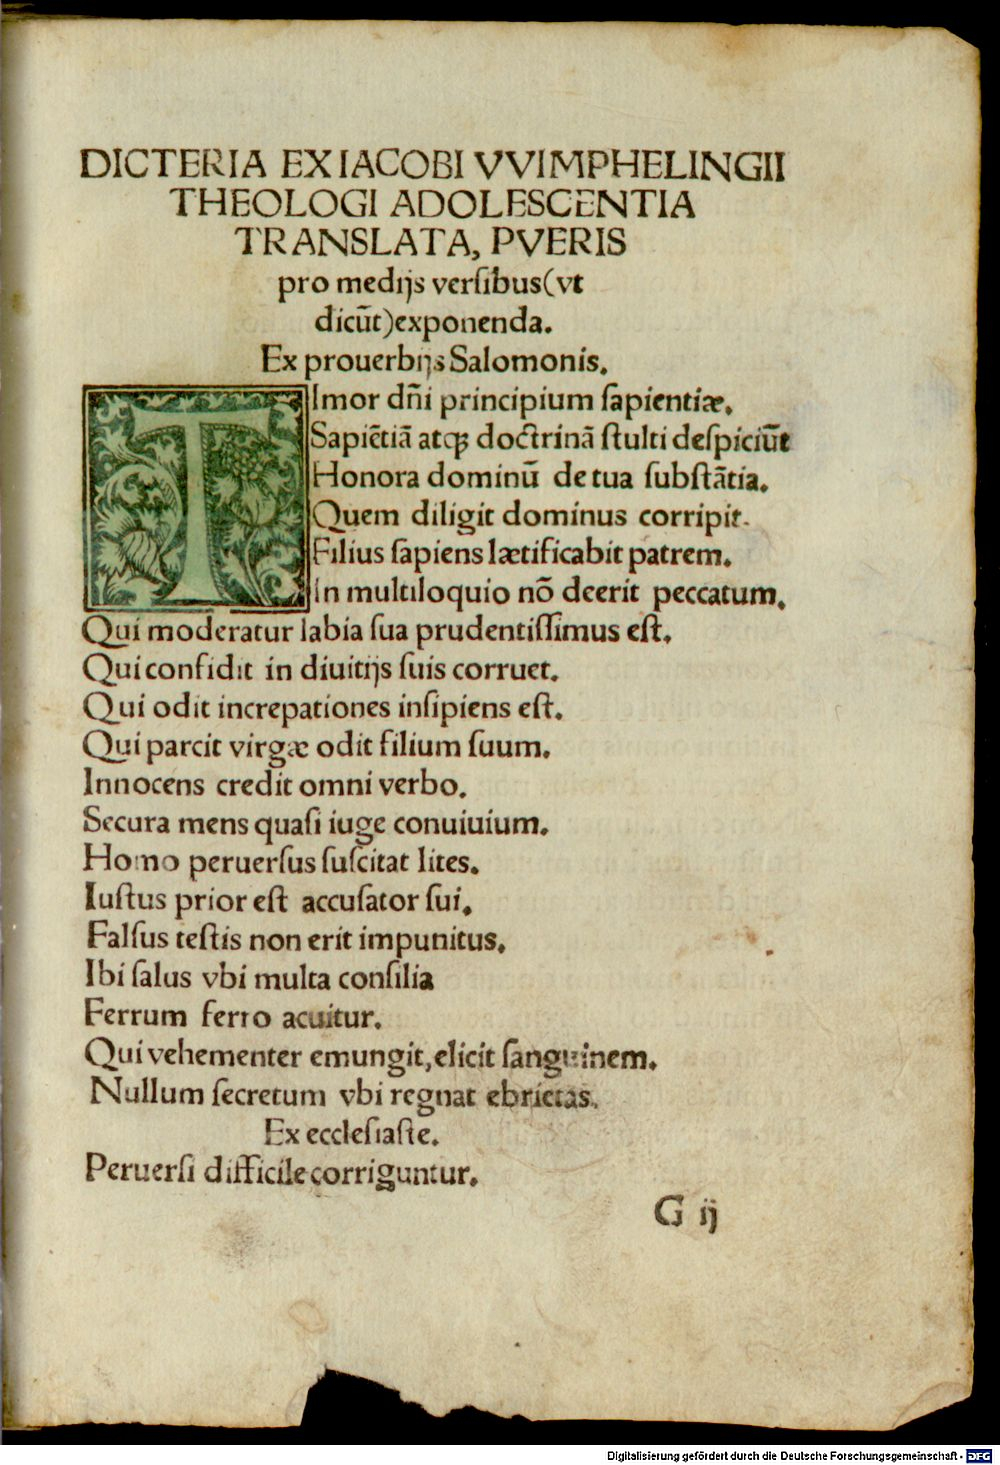 DICTERIA EX IACOBI VVIMPHELINGII
THEOLOGI ADOLESCENTIA
TRANSLATA, PVERIS
pro medijs verſibus(vt
dicūt)exponenda.
Ex prouerbijs Salomonis.
TImor dñi principium ſapientiæ.
Sapiētiā atqꝫ doctrinā ſtulti deſpiciūt
Honora dominū de tua ſubſtātia.
Quem diligit dominus corripit.
Filius ſapiens lætificabit patrem.
In multiloquio nō deerit peccatum.
Qui moderatur labia ſua prudentiſſimus eſt.
Qui confidit in diuitijs ſuis corruet.
Qui odit increpationes inſipiens eſt.
Qui parcit virgæ odit filium ſuum.
Innocens credit omni verbo.
Secura mens quaſi iuge conuiuium.
Homo peruerſus ſuſcitat lites.
Iuſtus prior eſt accuſator ſui.
Falſus teſtis non erit impunitus.
Ibi ſalus vbi multa conſilia
Ferrum ferro acuitur.
Qui vehementer emungit,elicit ſanguinem.
Nullum ſecretum vbi regnat ebrietas.
Ex eccleſiaſte.
Peruerſi difficile corriguntur.
G ij
Digitalisierung gefördert durch die Deutsche Forschungsgemeinschaft - DFG